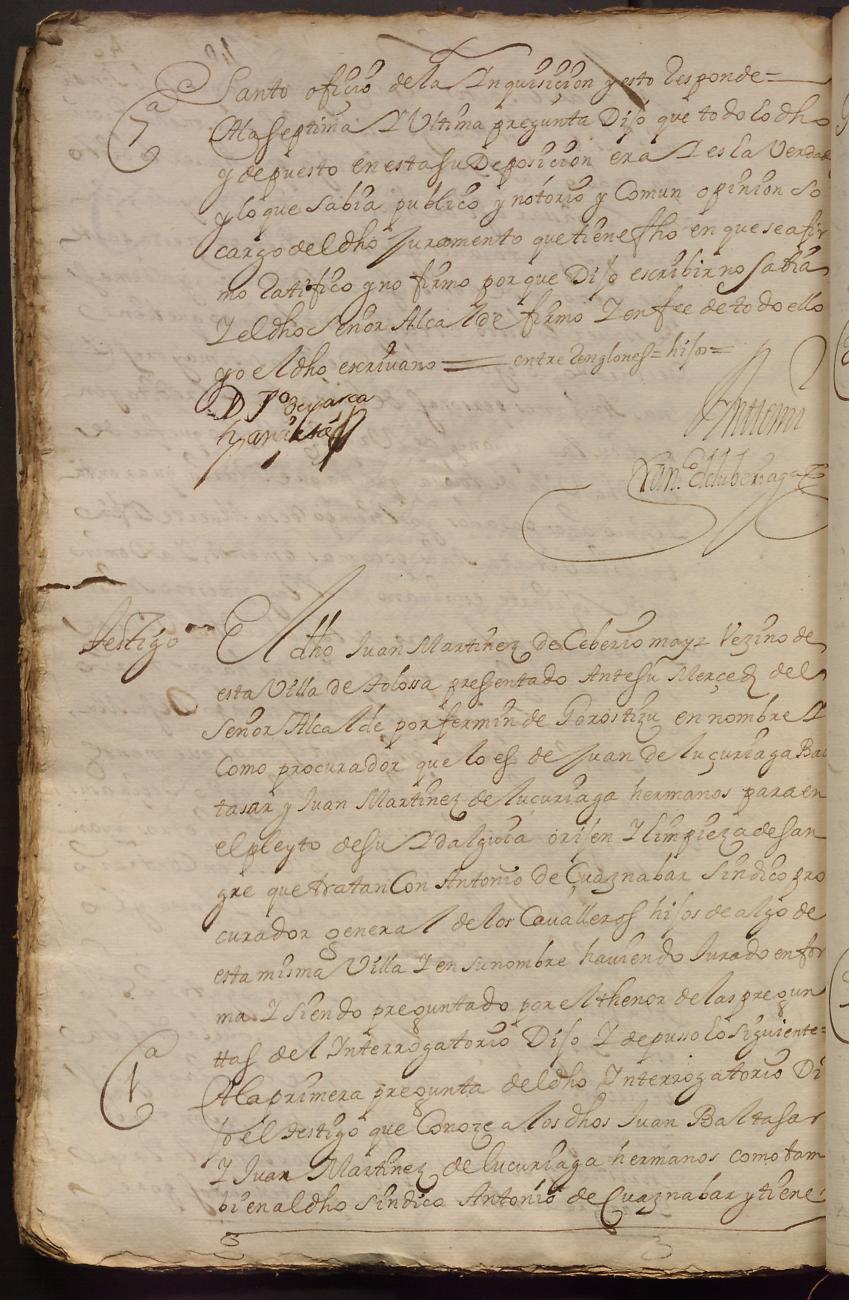 Santo oficio de la Inquisicion y esto Responde=
7ª
A la septima I Ultima pregunta Dijo que todo lo dho
y depuesto en esta su Deposicion era I es la Verdad
y lo que sabia publico y notorio y Comun opinion so
cargo del dho Juramento que tiene fho en que se afir
mo Ratifico y no firmo porque Dijo escribir no sabia
I el dho señor Alcalde firmo I en fee de todo ello
yo el dho escrivano = entre Renglones = hijos =
Antemi
Testigo
El dho Juan Martinez de Ceberio mayr Vezino de
esta Villa de Tolossa presentado Ante su Merçed del
señor Alcalde por fermin de Gorostizu en nombre I
Como procurador que lo es de Juan de luçuriaga Bal
tasar y Juan Martinez de luçuriaga hermanos para en
el pleyto de su Idalguia orijen I limpieza de san
gre que tratan Con Antonio de Cuaznabar sindico pro
curador general de los Cavalleros hijos de algo de
esta misma Villa I en su nombre haviendo Jurado en for
ma I siendo preguntado por el thenor de las pregun
ttas del Interrogatorio Dijo I depusso lo siguiente=
1ª
A la primera pregunta del dho Interrogatorio Di
jo el testigo que Conoze a los dhos Juan Baltasar
I Juan Martinez de lucuriaga hermanos como tam
bien al dho sindico Antonio de Cuaznabar y tiene